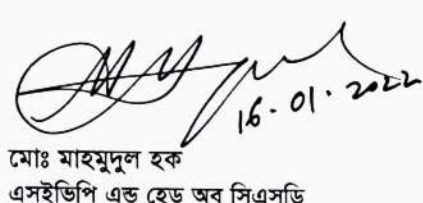 16. 01. 2022
মোঃ মাহমুদুল হক
এসইভিপি এন্ড হেড অব সিএসডি